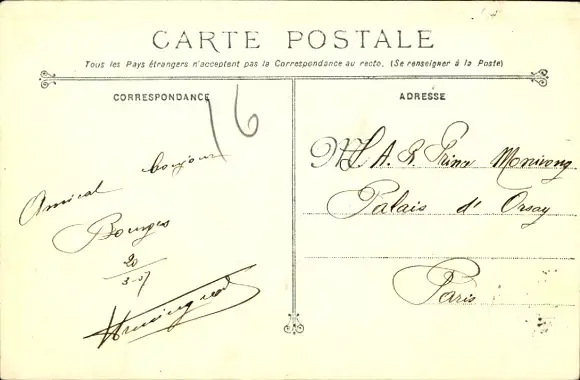 CARTE POSTALE
Tous les Pays étrangers n'acceptent pas la Correspondance au recto. (Se renseigner à la Poste)
CORRESPONDANCE
16
Amical bonjour
Bourges
20
3-07
ADRESSE
M S. A. R. Prince Monivong
Palais d'Orsay
Paris